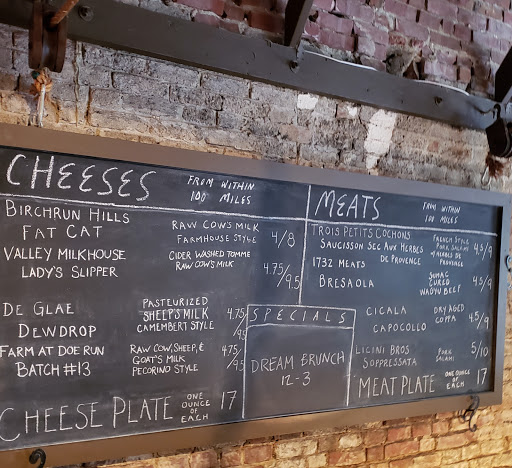 CHEESES FROM WITHIN
100 MILES
BIRCHRUN HILLS
FAT CAT
RAW COW'S MILK
FARMHOUSE STYLE
4/8
VALLEY MILKHOUSE
LADY'S SLIPPER
CIDER WASHED TOMME
RAW COW'S MILK
4.75/9.5
DE GLAE
DEWDROP
PASTEURIZED
SHEEP'S MILK
CAMEMBERT STYLE
4.75/9.5
FARM AT DOE RUN
BATCH #13
RAW COW, SHEEP, &
GOAT'S MILK
PECORINO STYLE
4.75/9.5
CHEESE PLATE ONE
OUNCE
OF
EACH
17
SPECIALS
DREAM BRUNCH
12-3
MEATS FROM WITHIN
100 MILES
TROIS PETITS COCHONS
SAUCISSON SEC AUX HERBES
DE PROVENCE
FRENCH STYLE
PORK SALAMI
W/ HERBES DE
PROVENCE
4.5/9
1732 MEATS
BRESAOLA
SUMAC
CURED
WAGYU BEEF
4.5/9
CICALA
CAPOCOLLO
DRY AGED
COPPA
4.5/9
LICINI BROS
SOPPRESSATA
PORK
SALAMI
5/10
MEAT PLATE ONE
OUNCE OF
EACH
17